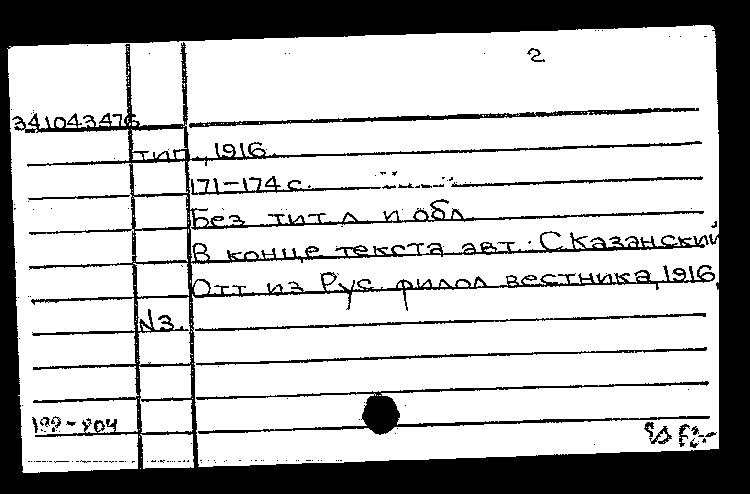 2
341043476
тип., 1916.
171-174 с.
Без тит. л. и обл.
В конце текста авт.: С Казанский
Отт. из Рус. филол. вестника, 1916,
N3.